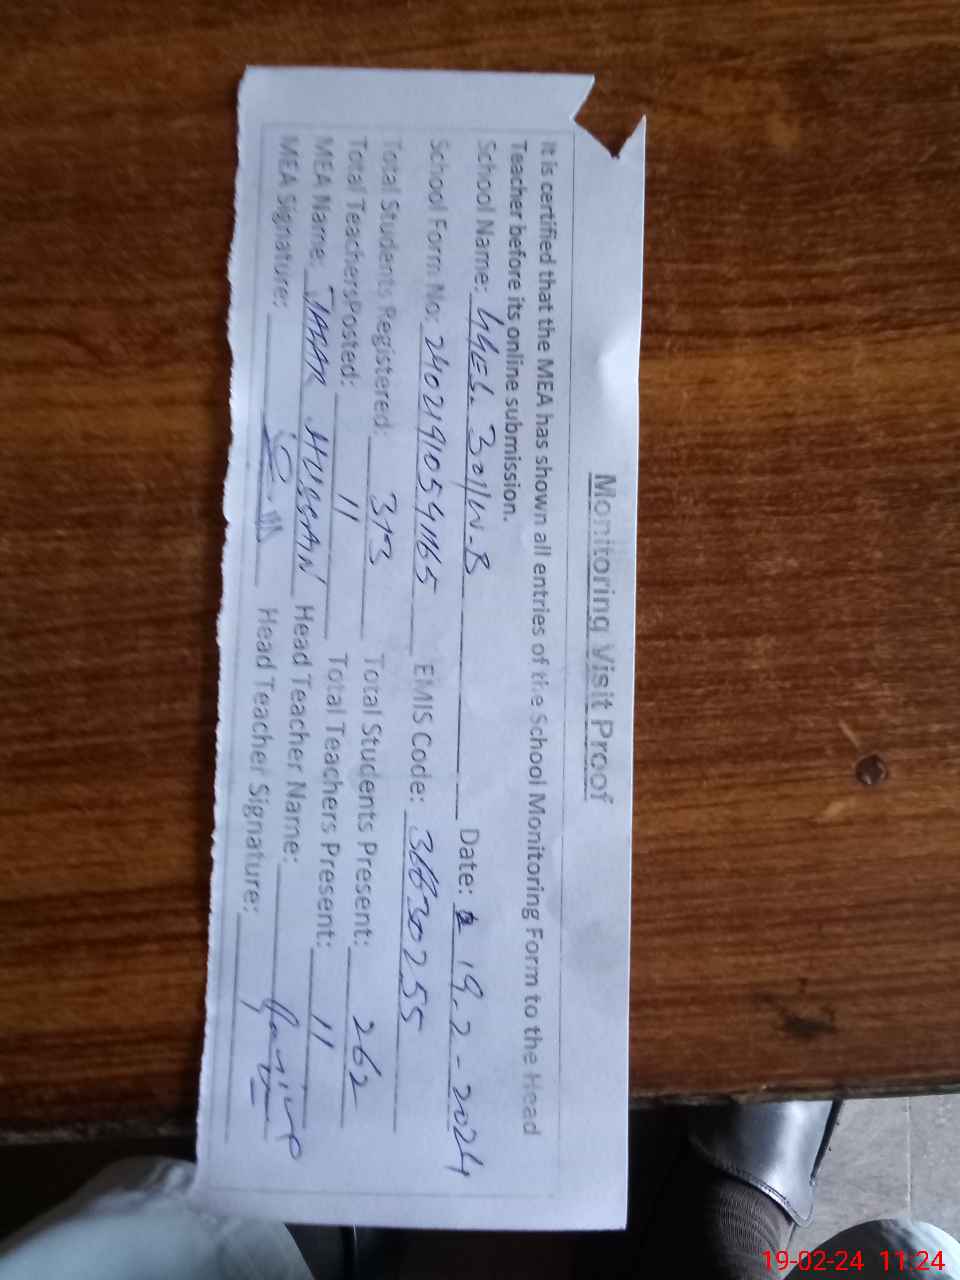 Monitoring Visit Proof
It is certified that the MEA has shown all entries of the School Monitoring Form to the Head
Teacher before its online submission.
School Name: GGES. 301/W-B Date: 19-2-2024
School Form No: 24021910541165 EMIS Code: 36630255
Total Students Registered: 313 Total Students Present: 262
Total TeachersPosted: 11 Total Teachers Present: 11
MEA Name: HUSSAIN Head Teacher Name:
MEA Signature: Head Teacher Signature:
19-02-24 11:24